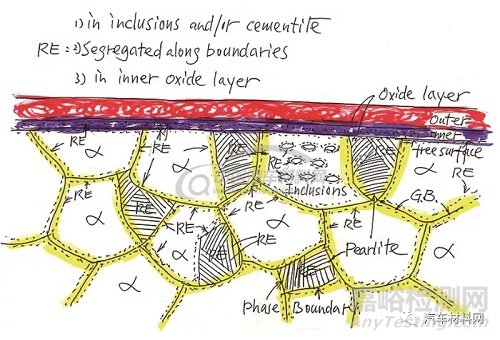 1) in inclusions and/or cementite
RE = 2) Segregated along boundaries
3) in inner oxide layer
Oxide layer
Outer
inner
free surface
RE
RE
RE
RE
RE
RE
α
α
α
Inclusions
G.B.
RE
RE
RE
RE
RE
α
α
α
RE
RE
Pearlite
α
α
α
RE
Phase Boundar
嘉峪检测网
AnyTesting.com
汽车材料网